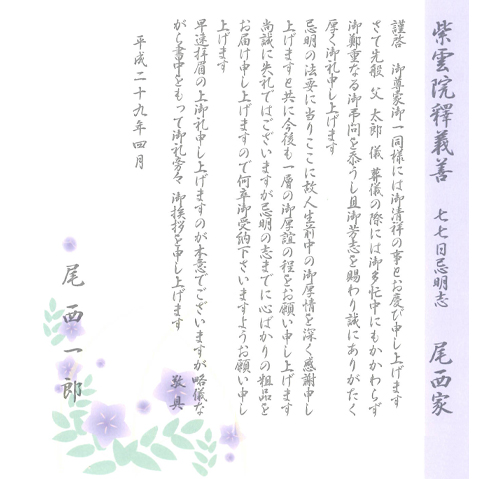 紫雲院釋義善　七七日忌明志　尾西家
謹啓　御尊家御一同様には御清祥の事とお慶び申し上げます
さて先般 父 太郎 儀 葬儀の際には御多忙中にもかかわらず
御鄭重なる御弔問を忝うし且御芳志を賜わり誠にありがたく
厚く御礼申し上げます
忌明の法要に当りここに故人生前中の御厚情を深く感謝申し
上げますと共に今後も一層の御厚誼の程をお願い申し上げます
尚誠に失礼ではございますが忌明の志までに心ばかりの粗品を
お届け申し上げますので何卒御受納下さいますようお願い申し
上げます
早速拝眉の上御礼申し上げますのが本意でございますが略儀な
がら書中をもって御礼旁々 御挨拶を申し上げます
敬具
平成二十九年四月
尾西一郎